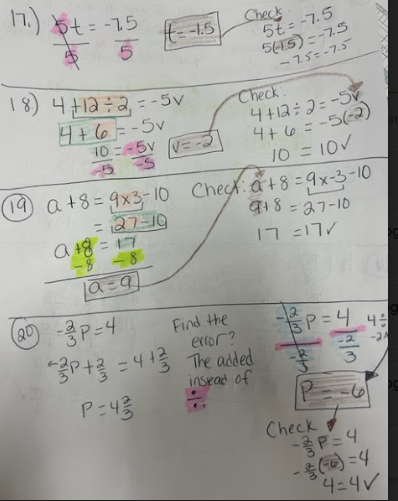 17.) 5t = -7.5
5 5
t = -1.5
Check:
5t = -7.5
5(-1.5) = -7.5
-7.5 = -7.5
18) 4 + 12 ÷ 2 = -5v
4 + 6 = -5v
10 = -5v
-5 -5
v = -2
Check:
4 + 12 ÷ 2 = -5v
4 + 6 = -5(-2)
10 = 10 ✓
19 a + 8 = 9x3 - 10
= 27 - 10
a + 8 = 17
-8 -8
a = 9
Check: a + 8 = 9x3 - 10
9 + 8 = 27 - 10
17 = 17 ✓
20 -2/3 P = 4
-2/3 P + 2/3 = 4 + 2/3
P = 4 2/3
Find the
error?
The added
instead of
÷.
-2/3 P = 4
-2/3 -2/3
4 ÷
P = -6
Check
-2/3 P = 4
-2/3 (-6) = 4
4 = 4 ✓